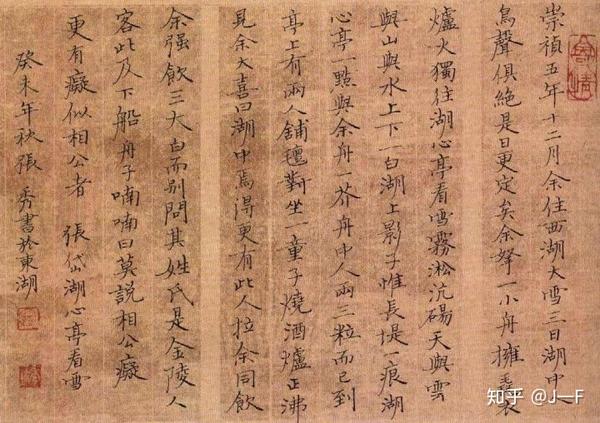 崇禎五年十二月余住西湖大雪三日湖中人
鳥聲俱絶是日更定矣余拏一小舟擁毳衣
爐火獨往湖心亭看雪霧淞沆碭天與雲
與山與水上下一白湖上影子惟長堤一痕湖
心亭一點與余舟一芥舟中人兩三粒而已到
亭上有兩人鋪氊對坐一童子燒酒爐正沸
見余大喜曰湖中焉得更有此人拉余同飲
余强飲三大白而别問其姓氏是金陵人
客此及下船舟子喃喃曰莫説相公癡
更有癡似相公者 張岱湖心亭看雪
癸未年秋張秀書於東湖
知乎 @J一F